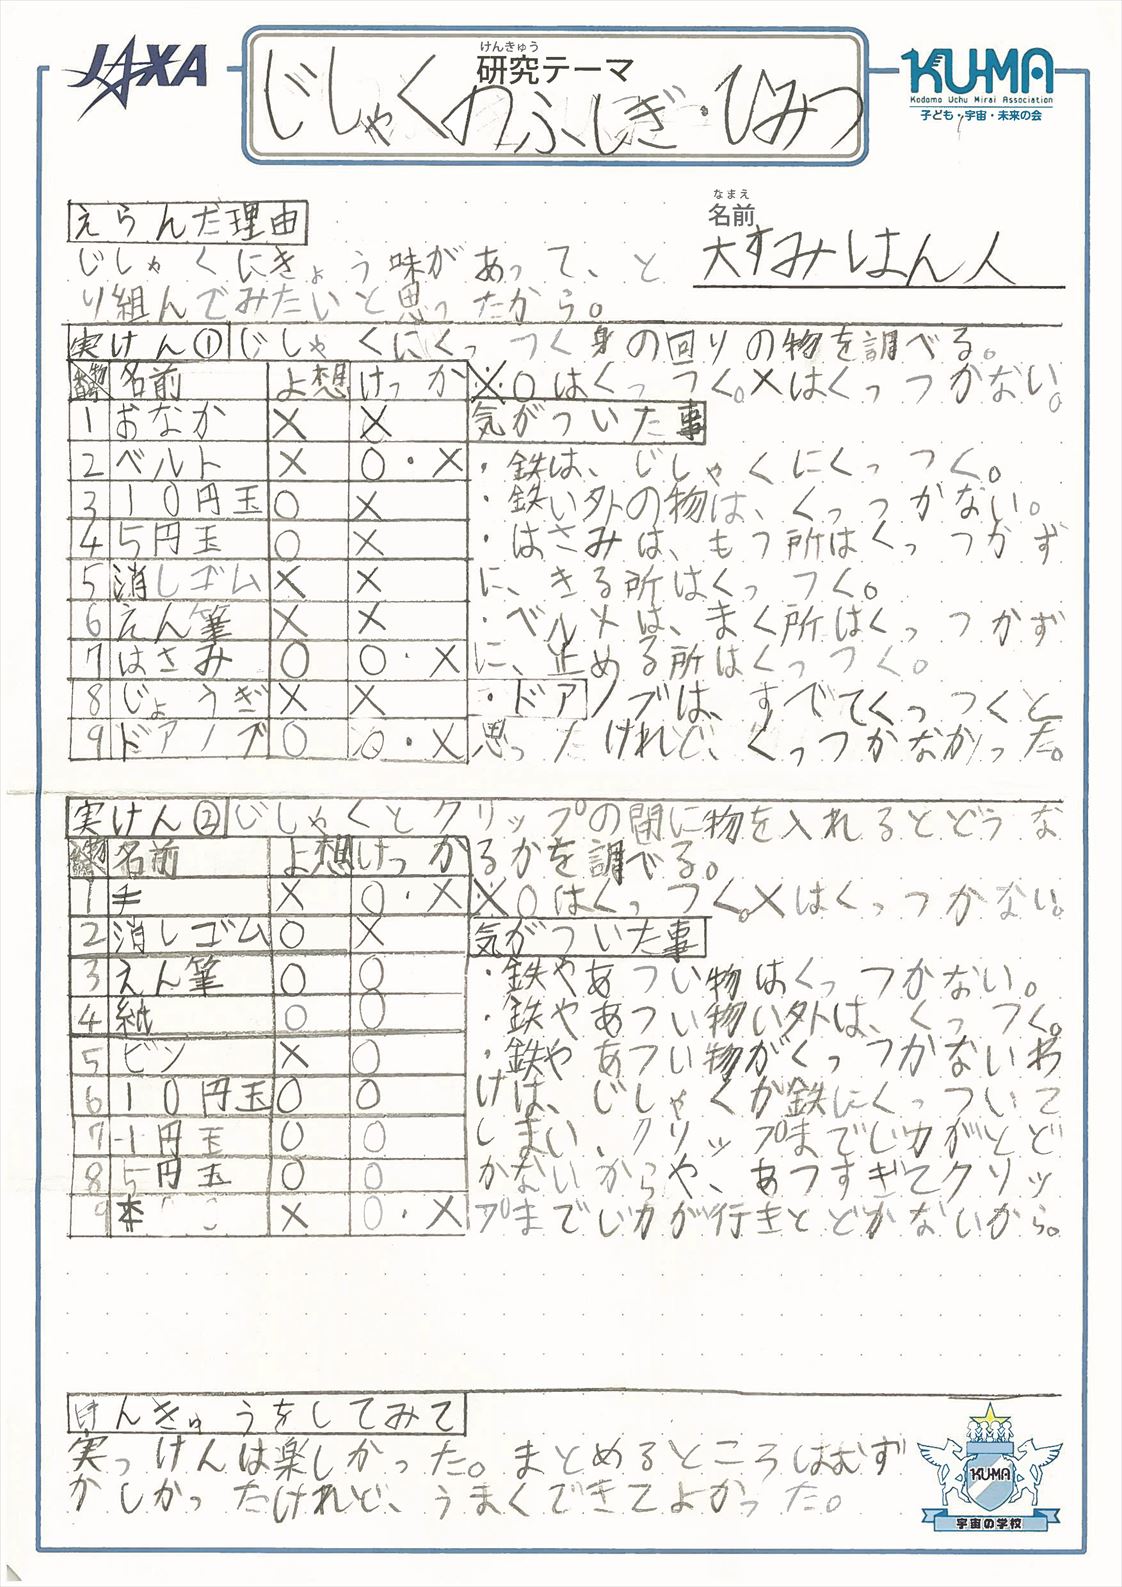 JAXA
けんきゅう
研究テーマ
じしゃくのふしぎ・ひみつ
KU-MA
Kodomo Uchu Mirai Association
子ども・宇宙・未来の会
えらんだ理由
なまえ
名前
大すみはん人
じしゃくにきょう味があって、と
り組んでみたいと思ったから。
実けん①じしゃくにくっつく身の回りの物を調べる。
名前 よ想 けっか ※○はくっつく。×はくっつかない。
1 おなか × ×
気がついた事
2 ベルト × ○・×
・鉄は、じしゃくにくっつく。
3 10円玉 ○ ×
・鉄い外の物は、くっつかない。
4 5円玉 ○ ×
・はさみは、もつ所はくっつかず
5 消しゴム × ×
に、きる所はくっつく。
6 えん筆 × ×
・ベルトは、まく所はくっつかず
7 はさみ ○ ○・×
に、止める所はくっつく。
8 じょうぎ × ×
・ドアノブは、すべてくっつくと
9 ドアノブ ○ ○・×
思ったけれど、くっつかなかった。
実けん②じしゃくとクリップの間に物を入れるとどうな
名前 よ想 けっか るかを調べる。
1 手 × ○・×
※○はくっつく。×はくっつかない。
2 消しゴム ○ ×
気がついた事
3 えん筆 ○ ○
・鉄やあつい物はくっつかない。
4 紙 ○ ○
・鉄やあつい物い外は、くっつく。
5 ビン × ○
・鉄やあつい物がくっつかないわ
6 10円玉 ○ ○
けは、じしゃくが鉄にくっついて
7 1円玉 ○ ○
しまい、クリップまでじ力がとど
8 5円玉 ○ ○
かないからや、あつすぎてクリッ
9 本 × ○・×
プまでじ力が行きとどかないから。
けんきゅうをしてみて
実っけんは楽しかった。まとめるところはむず
かしかったけれど、うまくできてよかった。
KU-MA
宇宙の学校